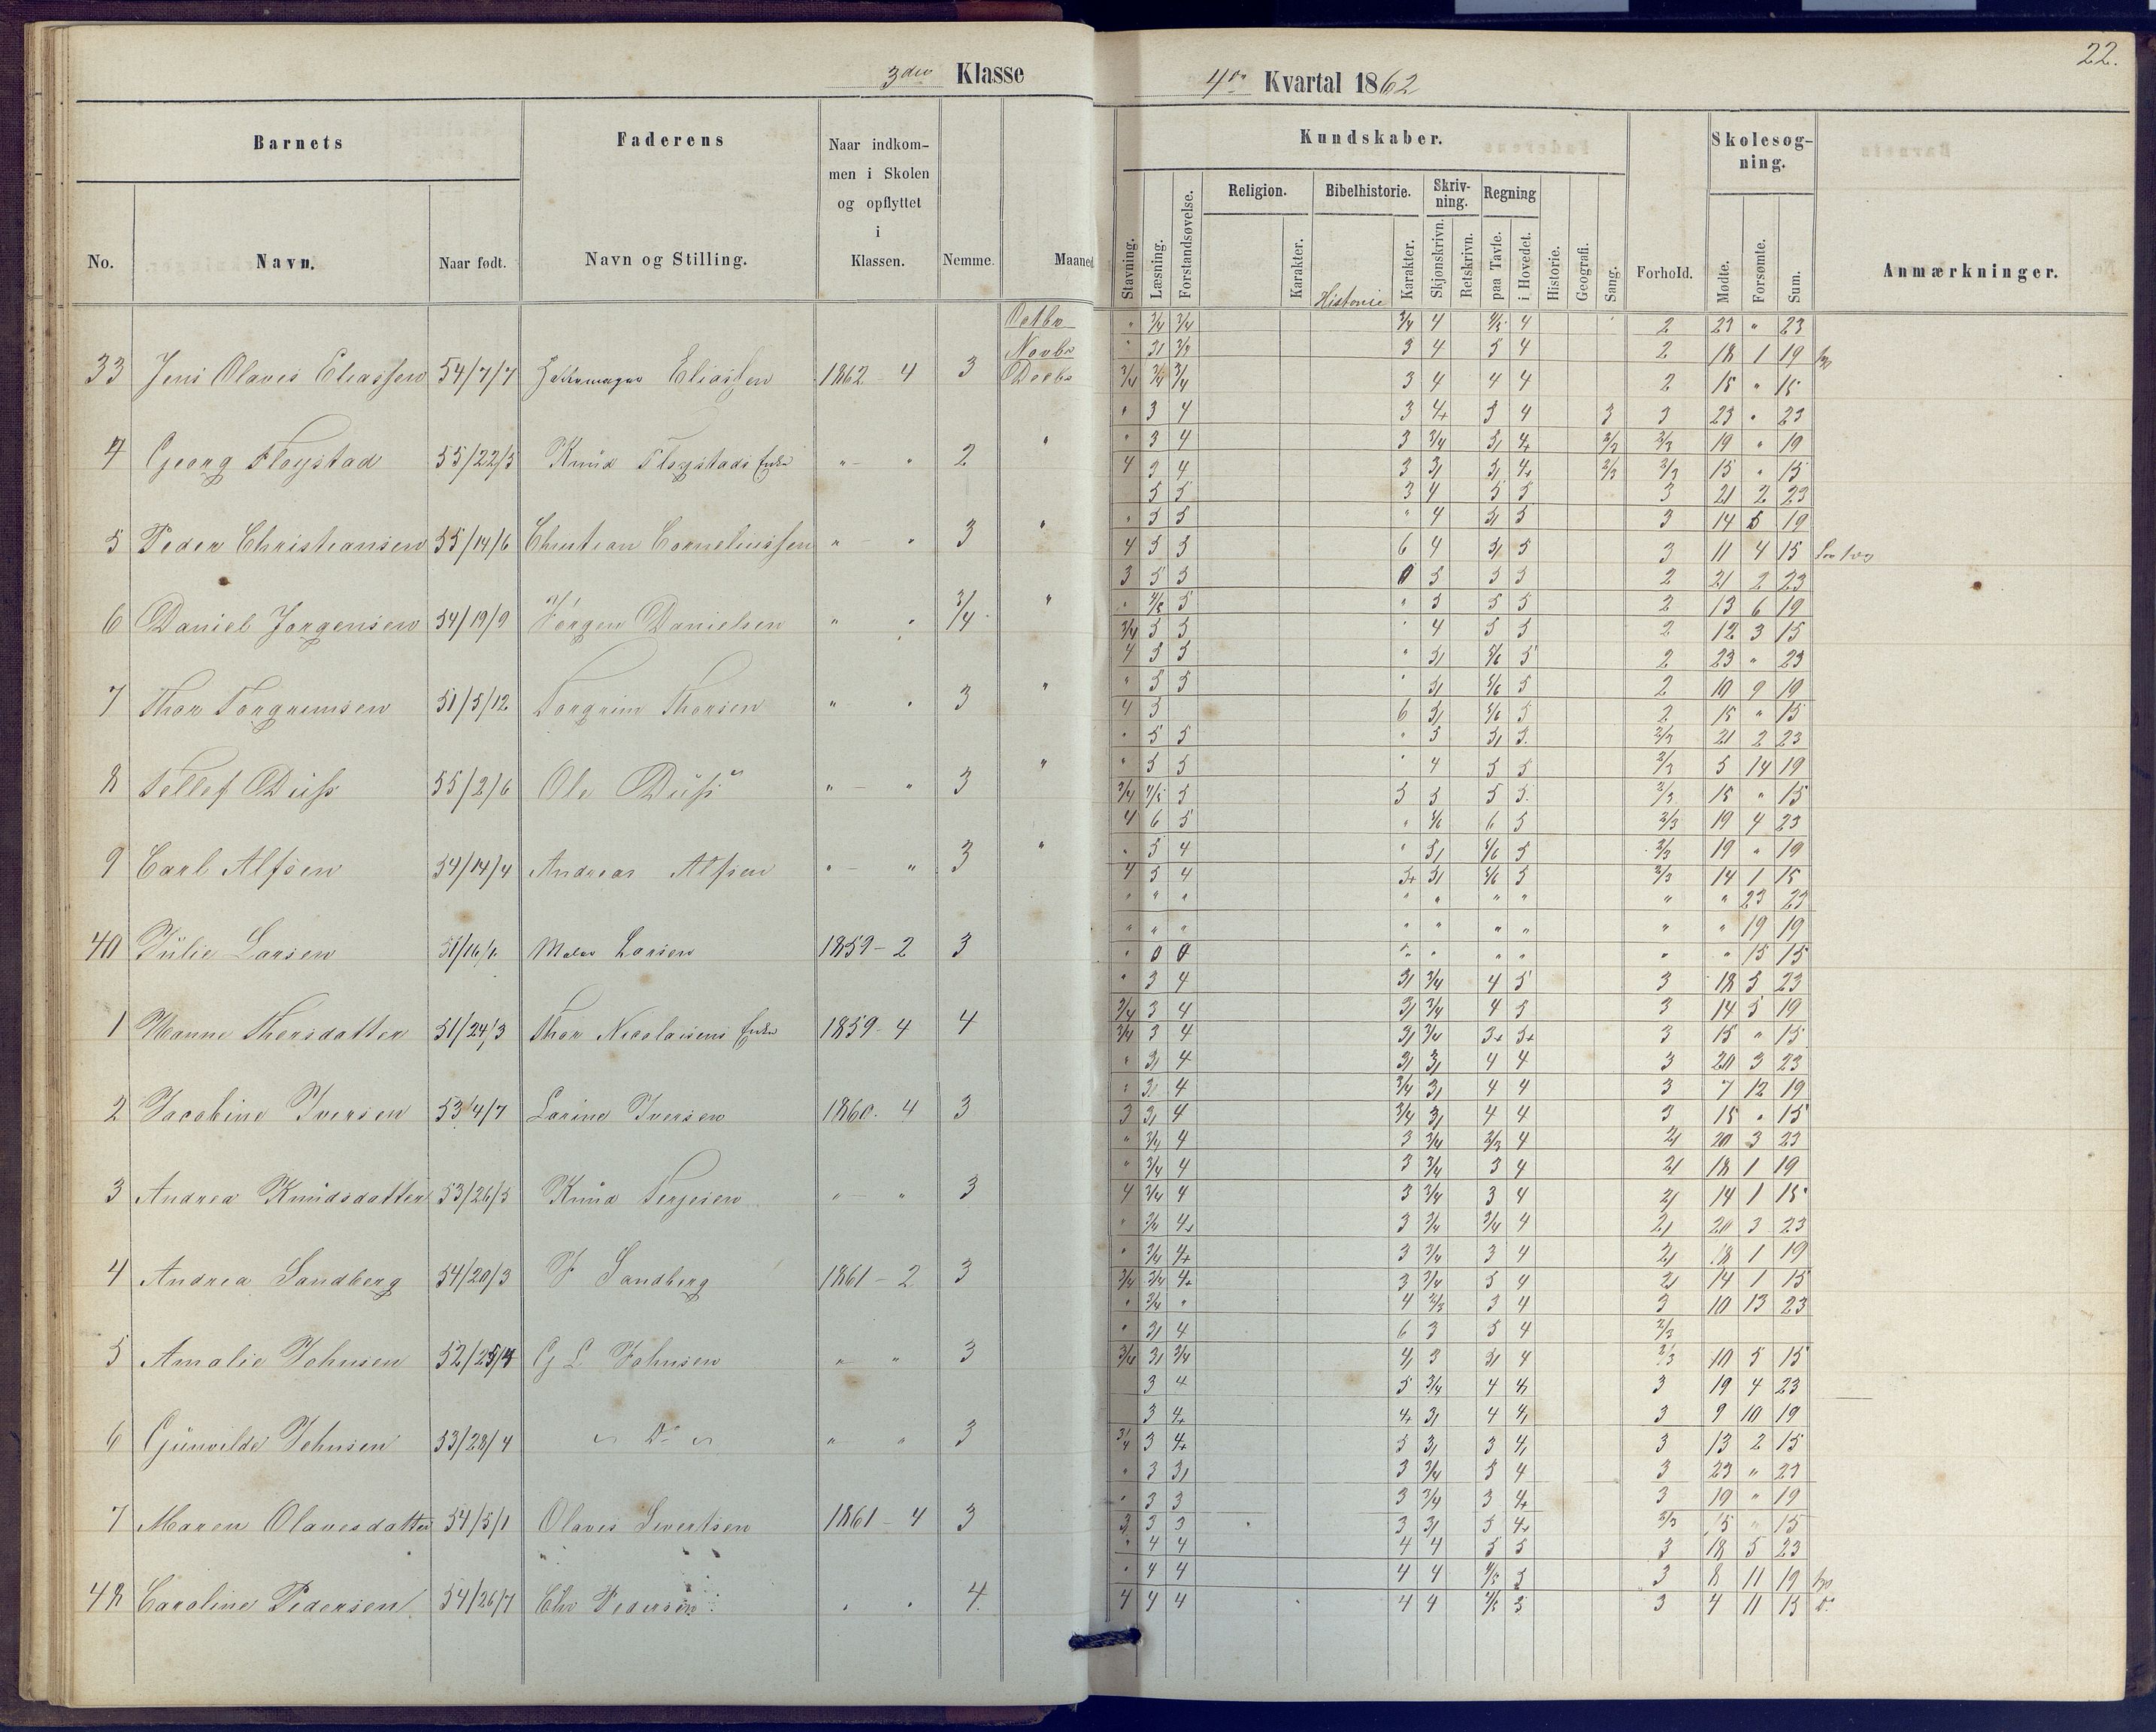 22.
3die Klasse
4de Kvartal 1862
Barnets
Faderens
Naar indkom-
men i Skolen
og opflyttet
i
Klassen.
No.
Navn.
Naar født.
Navn og Stilling.
Nemme.
Maaned
Kundskaber.
Skolesøg-
ning.
Stavning.
Læsning.
Forstandsøvelse.
Religion.
Karakter.
Bibelhistorie.
Historie
Karakter.
Skriv-
ning.
Skjønskrivn.
Retskrivn.
Regning
paa Tavle.
i Hovedet.
Historie.
Geografi.
Sang.
Forhold.
Mødte.
Forsømte.
Sum.
Anmærkninger.
Octbr 2 23 " 23
Novbr 3 4 5 4 2 18 1 19
33 Jens Olaves Eliassen 54/7/7 Eliassen 1862 4 3 Decbr 3 4 4 4 2 15 " 15
" 3 4 3 4+ 3 4 3 3 23 " 23
" 3 4 19 " 19
4 Georg Fløystad 55/22/5 Knud Fløystads Enke " - " 2 " 4 3 4 15 " 15
5 5 3 4 5 5 3 21 2 23
" 5 5 " 4 3 14 5 19
5 Peder Christiansen 55/14/6 Christian Corneliussen " - " 3 " 4 5 5 6 4 3 11 4 15
3 5 5 0 5 5 5 2 21 2 23
" 4/5 5 " 5 5 5 2 13 6 19
6 Daniel Jørgensen 54/19/9 Jørgen Danielsen " " 3/4 " 3/4 5 5 " 4 5 5 2 12 3 15
4 5 5 2 23 " 23
" 5 5 2 10 9 19
7 Thor Torgrimsen 51/5/12 Torgrim Thorsen " " 3 " 4 5 6 2 15 " 15
" 5 5 2/3 21 2 23
" 5 5 " 4 5 5 2/3 5 14 19
8 Tellef Duss 55/2/6 Ole Duss " - " 3 " 3/4 4/5 5 5 5 5 5 2/3 15 " 15
4 6 5 6 5 2/3 19 4 23
" 5 4 2/3 19 " 19
9 Carl Alfsen 54/14/4 Andreas Alfsen " - " 3 " 4 5 4 2/3 14 1 15
" " " " " " " " " 23 23
" " " " " " " " " 19 19
40 Julie Larsen Maler Larsen 1859 - 2 3 " 0 0 " " " " " " 15 15
" 3 4 3/4 4 5 3 18 5 23
3/4 3 4 3/4 4 5 3 14 5 19
1 Hanne Thorsdatter 51/24/3 Thor Nicolaisens Enke 1859 - 4 4 3/4 3 4 3/4 3 15 " 15
4 4 4 3 20 3 23
4 3/4 4 4 3 7 12 19
2 Jacobine Iversen 53/4/7 Larine Iversen 1860. 4 3 3 4 3/4 4 4 3 15 " 15
" 3/4 4 3 3/4 2/3 4 20 3 23
" 3/4 4 3 3/4 3 4 18 1 19
3 Andrea Knudsdatter 53/26/5 Knud Terjesen " - " 3 4 3/4 4 3 3/4 3 4 14 1 15
" 3/4 4+ 3 3/4 3/4 4 20 3 23
" 3/4 4+ 3 3/4 3 4 18 1 19
4 Andrea Sandberg 54/20/3 F Sandberg 1861 - 2 3 3/4 3/4 4+ 3 3/4 5 4 14 1 15
" 3/4 " 4 2/3 3 4 3 10 13 23
4 6 3 5 4 2/3
5 Amalie Johnsen 52/25/4 G L Johnsen " " 3 3/4 3/4 3 4 2/3 10 5 15
3 4 5 3/4 4 3 19 4 23
3 4+ 4+ 4 3 9 10 19
6 Gunvilde Johnsen 53/28/4 " Do " " " 3 3/4 3 4+ 5 3 3 13 2 15
" 3 3 3/4 5 4 3 23 " 23
" 3 3 3 3/4 3 4+ 3 19 " 19
7 Maren Olavesdatter 54/5/1 Olaves Sivertsen 1861 - 4 3 3 3 3 3 5 4+ 2/3 15 " 15
" 4 4 4 4 5 5 3 18 5 23
" 4 4 4 4 4/5 5 3 8 11 19
48 Caroline Pedersen 54/26/7 Chr Pedersen " " 4 4 4 4 4 4 4/5 5 3 4 11 15 do